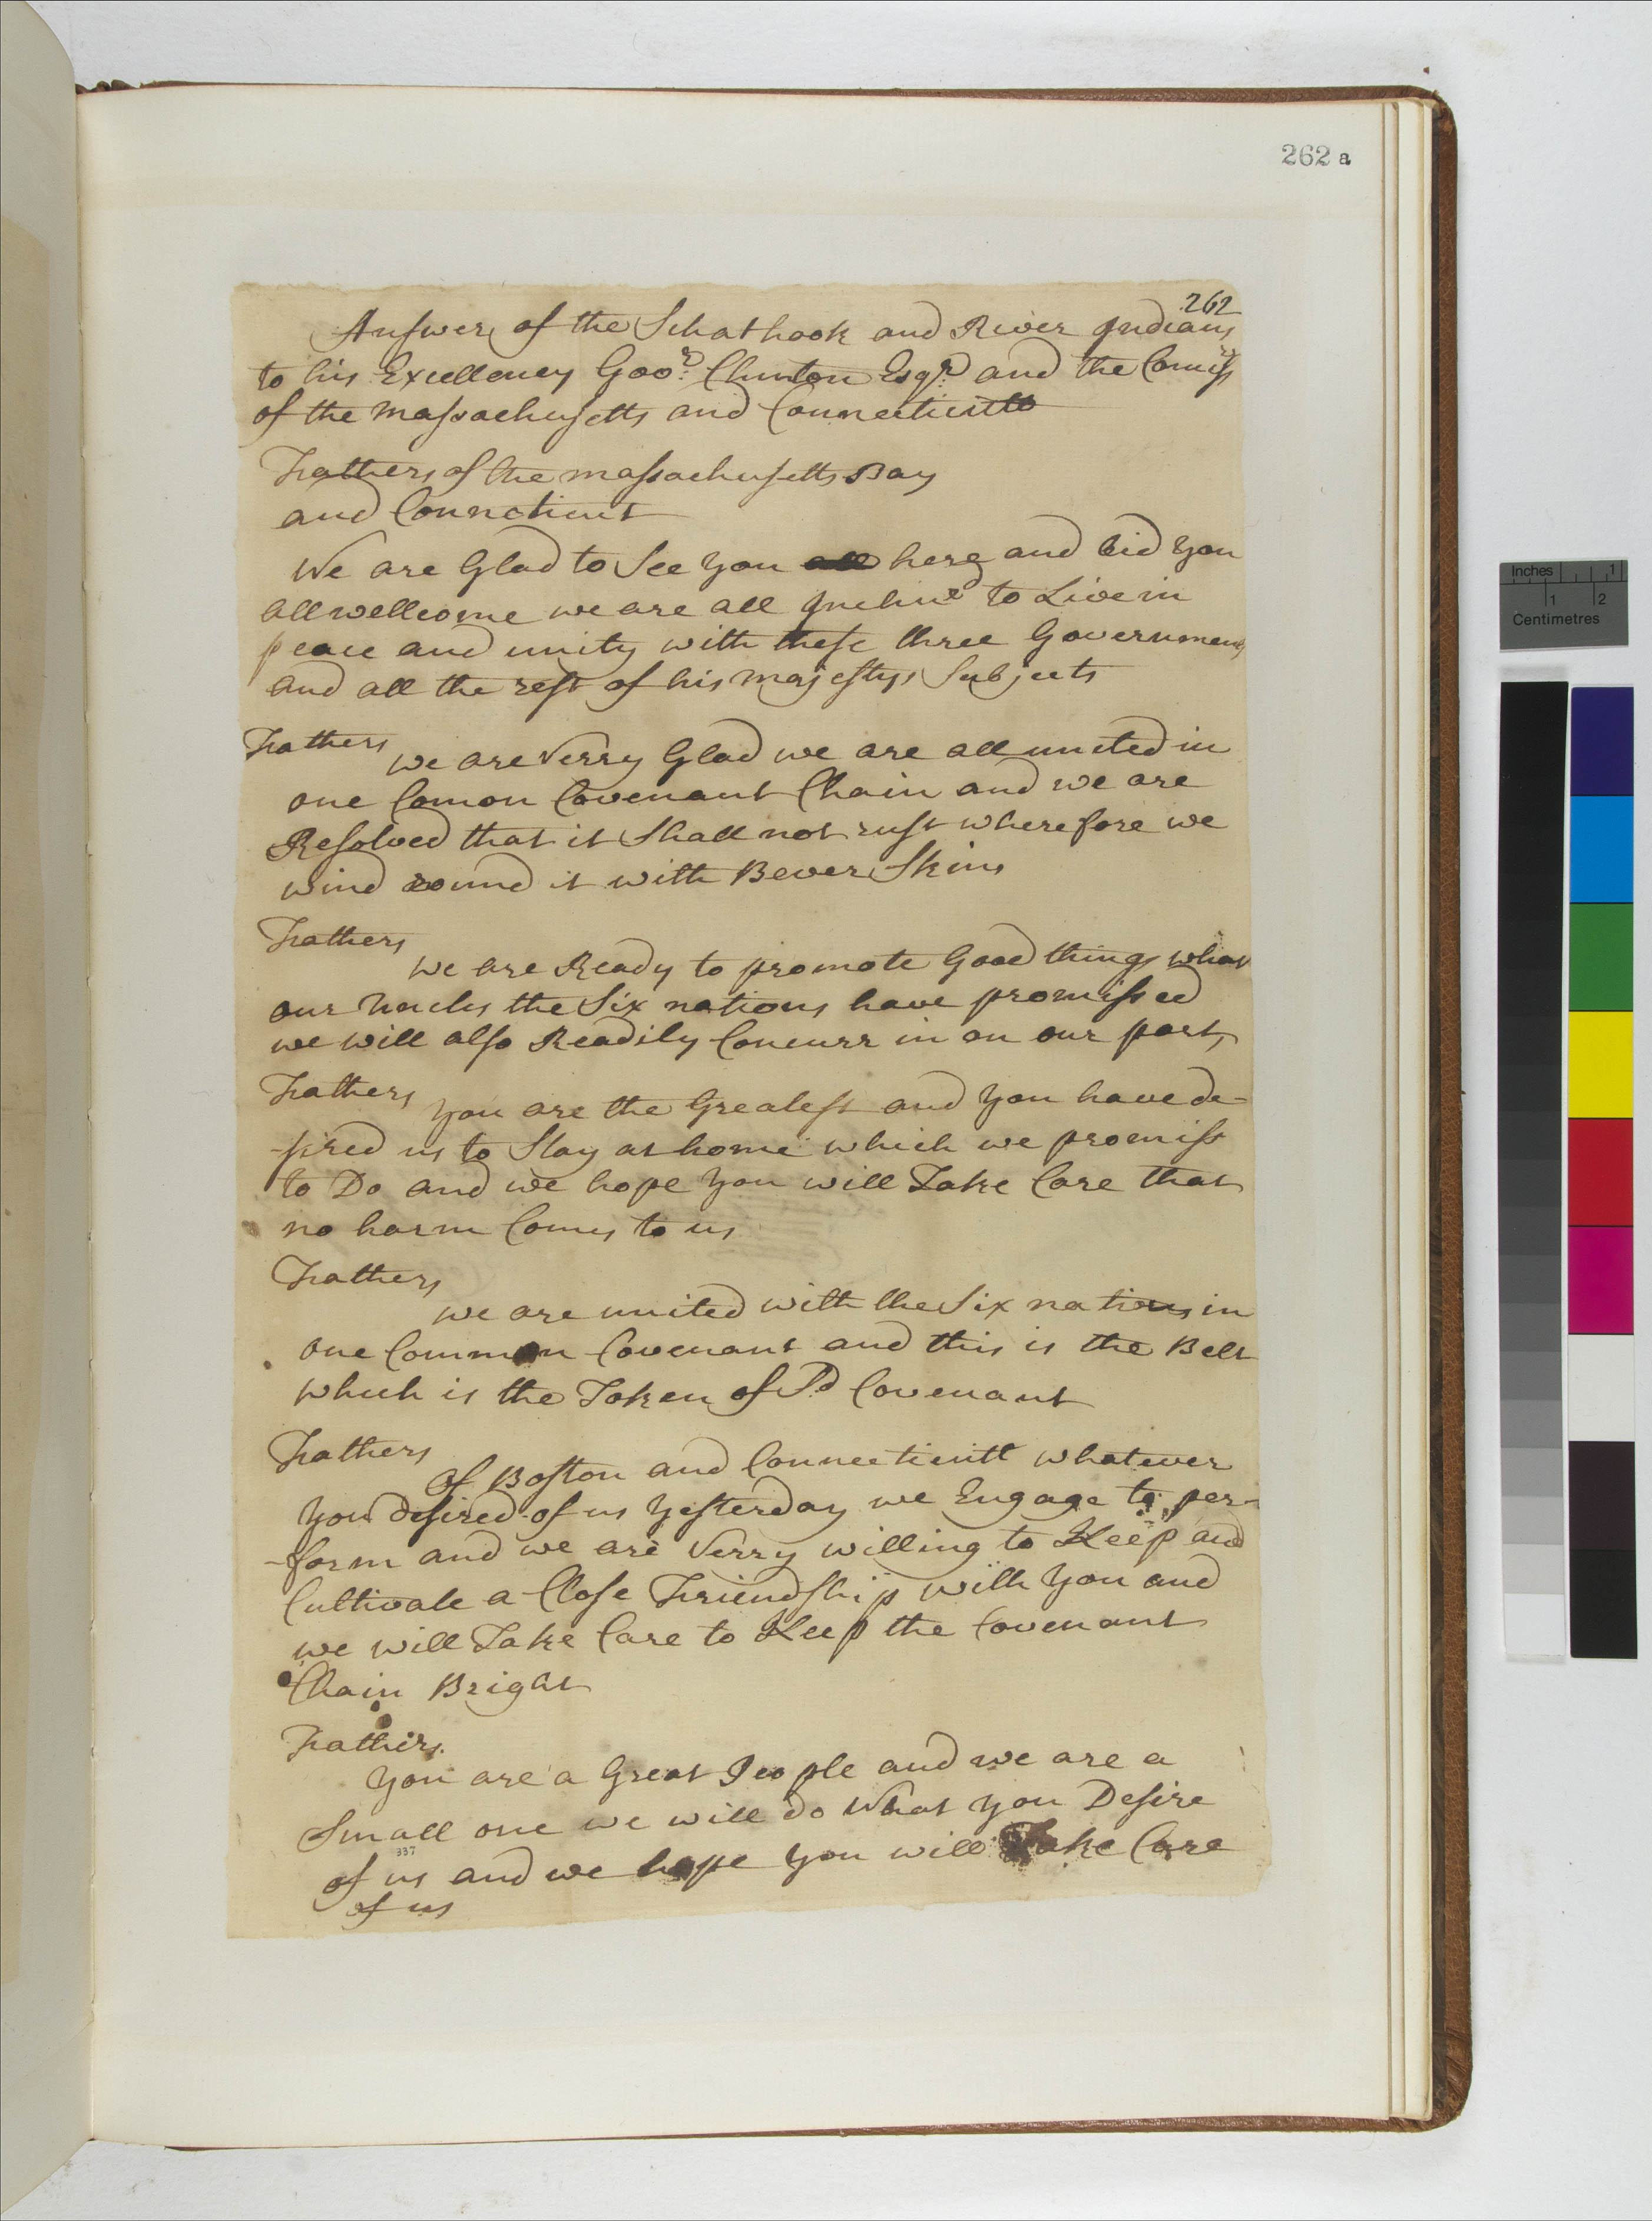 262 a
262
Answer of the Schathook and River Indians
to his Excellency Gov.r Clinton Esqr. and the Comiss.rs
of the Massachusetts and Connecticutt
Fathers of the Massachusetts Bay
and Connecticut
We are Glad to See you all here and bid you
all wellcome we are all Inclin'd to Live in
peace and unity with these three Governments
and all the rest of his majestys Subjects
Fathers
we are Verry Glad we are all united in
one Comon Covenant Chain and we are
Resolved that it Shall not rust wherefore we
wind round it with Bever Skins
Fathers
we are Ready to promote Good things what
our Uncles the Six nations have promissed
we will also Readily Concurr in on our part,
Fathers
you are the Greatest and you have de-
-sired us to Stay at home which we promiss
to Do and we hope you will Take Care that
no harm Comes to us
Fathers
we are united with the Six nations in
one Common Covenant and this is the Belt
which is the Token of Sd Covenant
Fathers
of Boston and Connecticutt whatever
you desired of us yesterday we Engage to per-
-form and we are Verry willing to Keep and
Cultivate a Close Friendship with you and
we will Take Care to Keep the Covenant
Chain Bright
Fathers.
you are a Great People and we are a
Small one we will do what you Desire
337
of us and we hope you will Take Care
of us
Inches 1
1 2
Centimetres